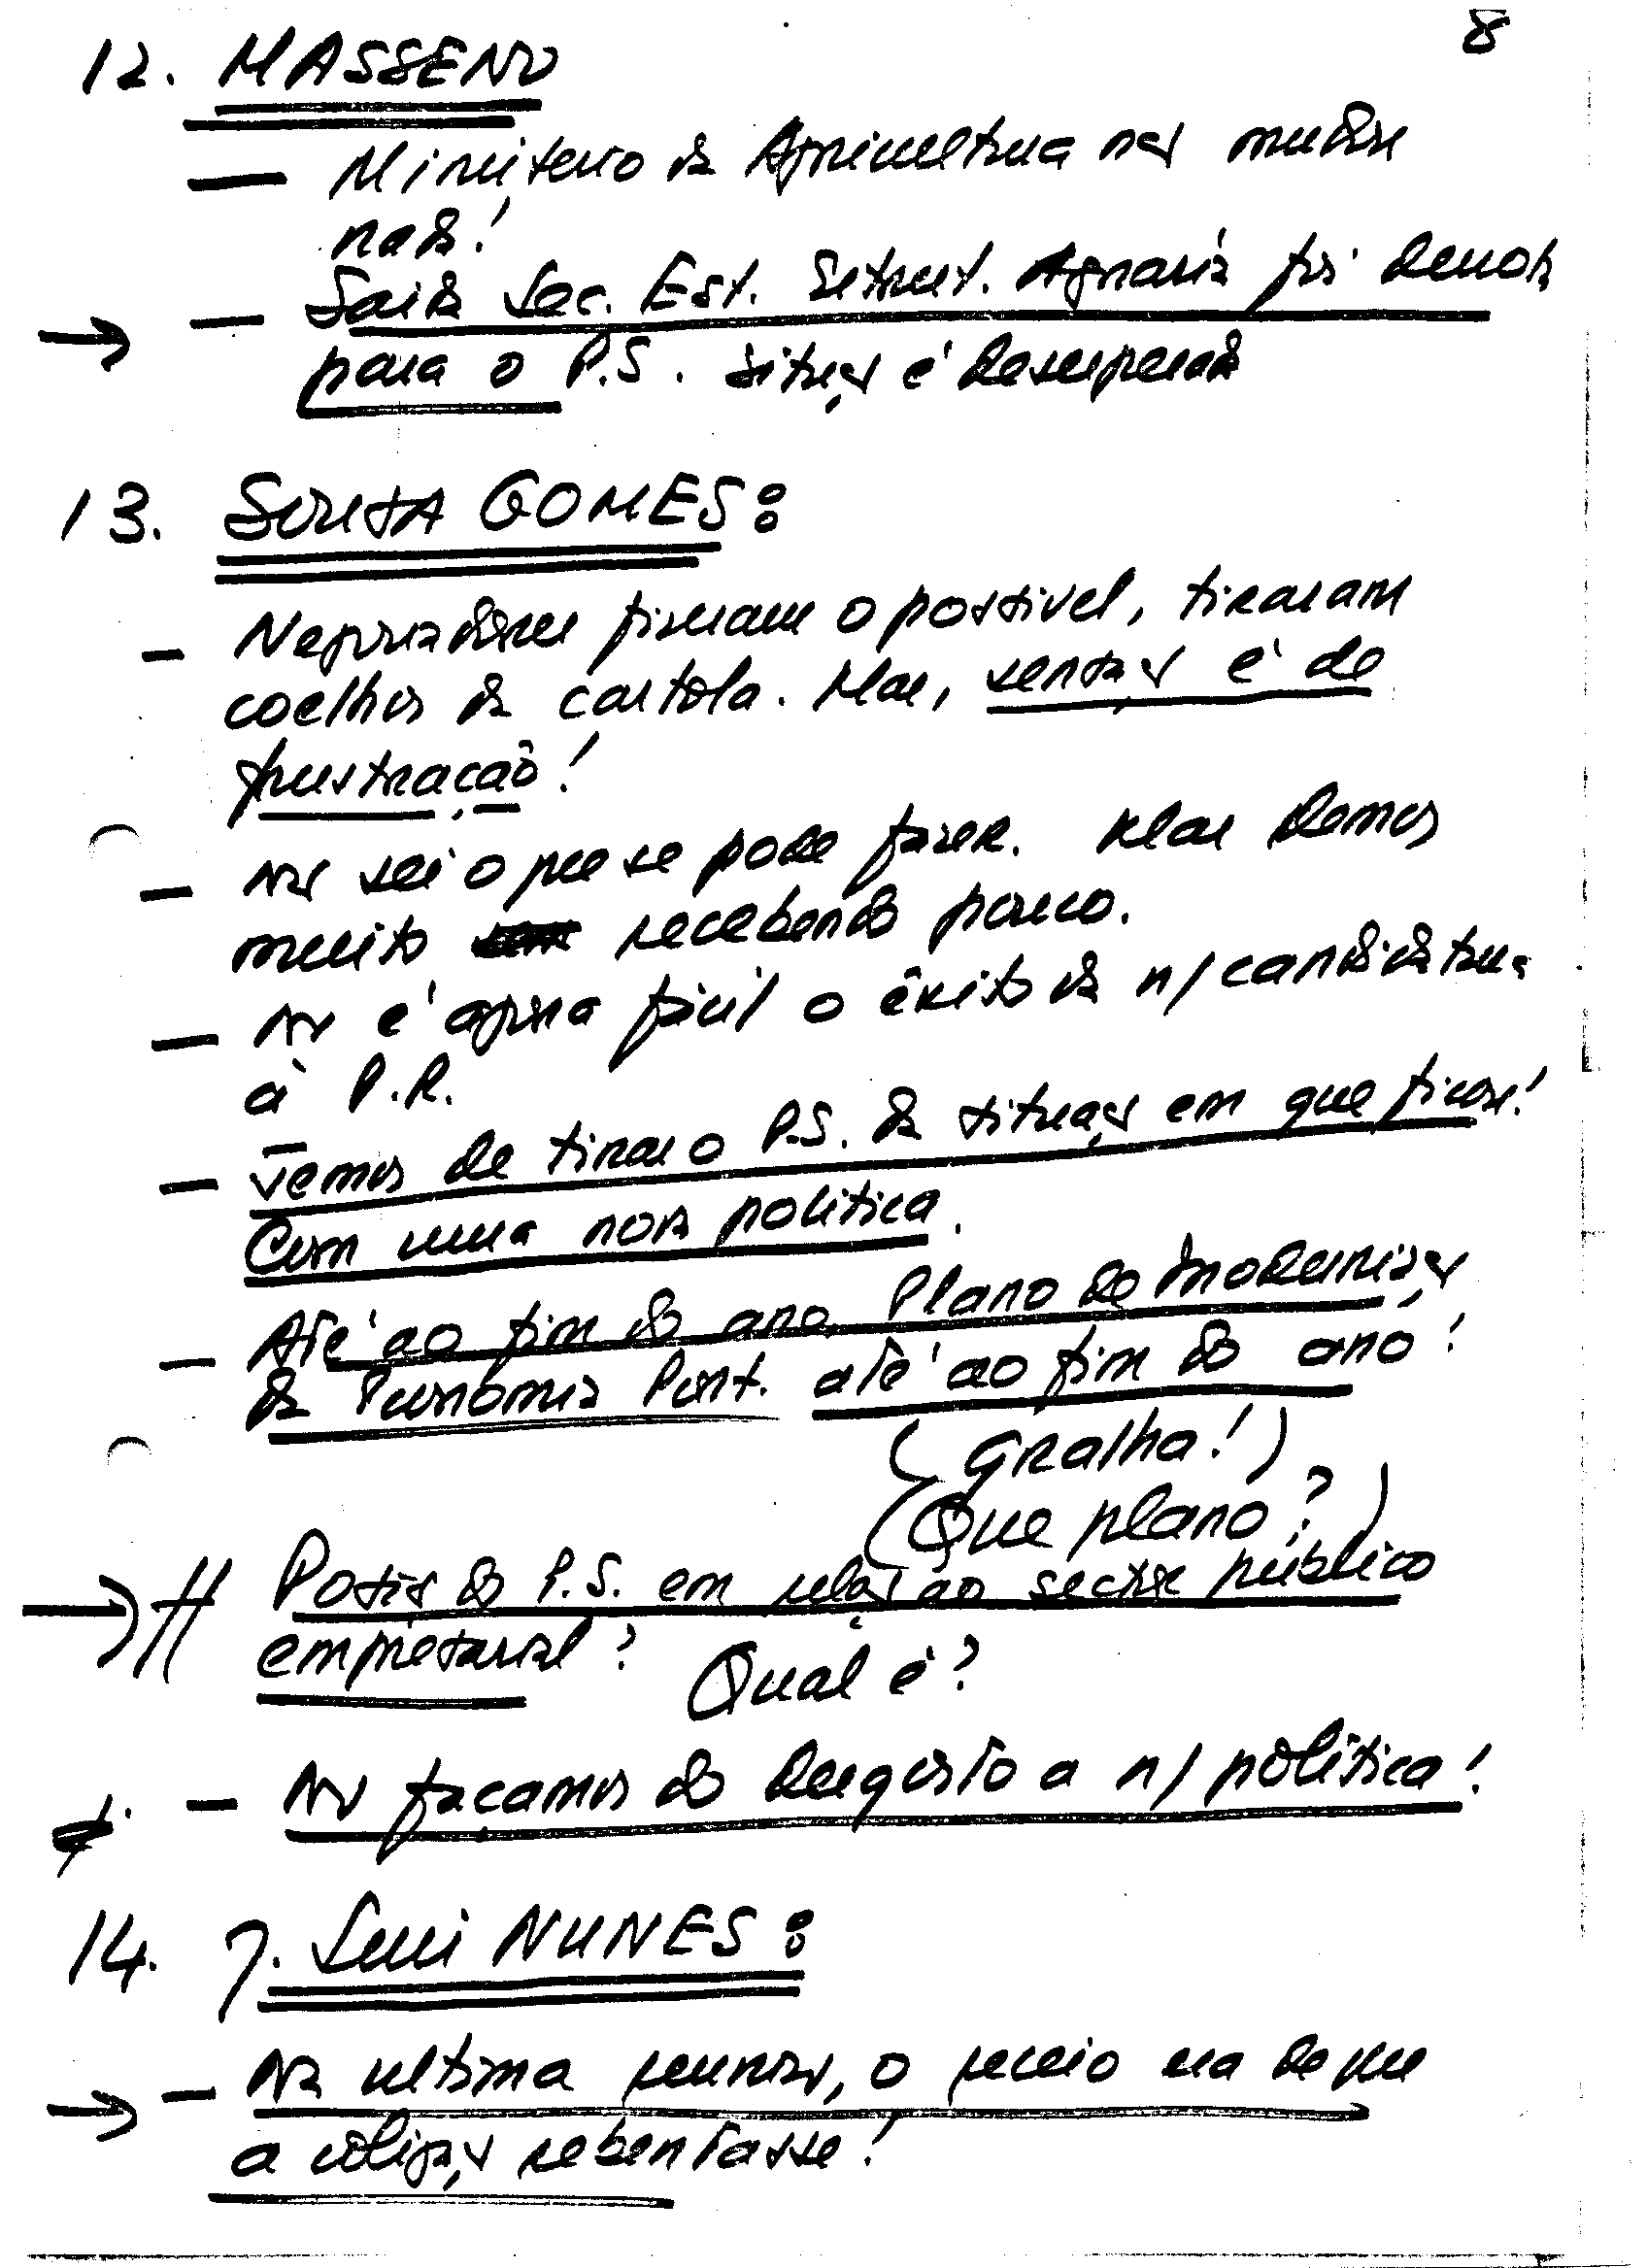 8
12. MASSENO
— Ministerio da Agricultura não mudou
nada!
→ — Saida Sec. Est. Estrut. Agraria foi derrota
para o P.S. Situação é desesperada
13. SOUSA GOMES:
- Negociadores fizeram o possivel, tiraram
coelhos da cartola. Mas, sensação é de
frustração!
— Não sei o que se pode fazer. Mas demos
muito recebendo pouco.
— Não é agora fácil o êxito da n/ candidatura
à P.R.
— Temos de tirar o P.S. da situação em que ficou!
Com uma nova politica.
— Até ao fim do ano, Plano de Modernização
da Economia Port. até ao fim do ano!
(Gralha!)
(Que plano?)
→ // Posição do P.S. em relação ao sector público
empresarial? Qual é?
— Não façamos do desgosto a n/ política!
14. J. Luis NUNES:
→ — Na ultima reunião, o receio era de que
a coligação rebentasse!